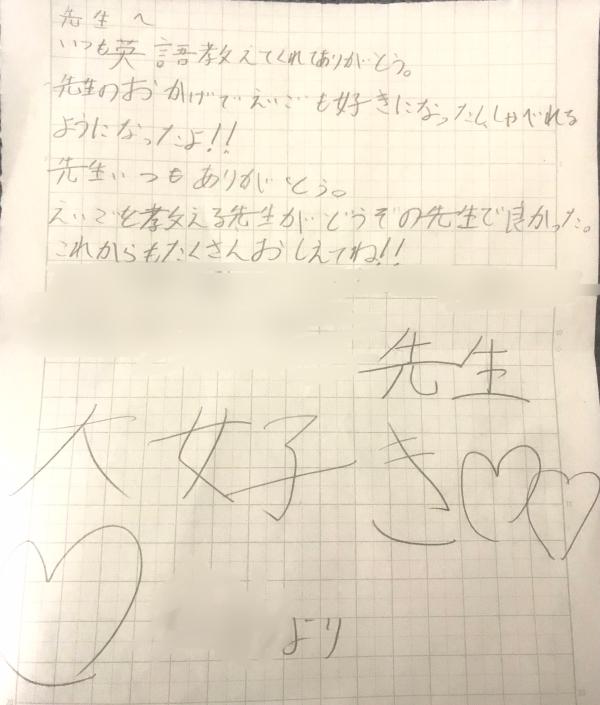 先生へ
いつも英語教えてくれてありがとう。
先生のおかげでえいごも好きになったし、しゃべれる
ようになったよ!!
先生いつもありがとう。
えいごを教える先生がどうぞの先生で良かった。
これからもたくさんおしえてね!!
先生
大好き♡♡
♡
より